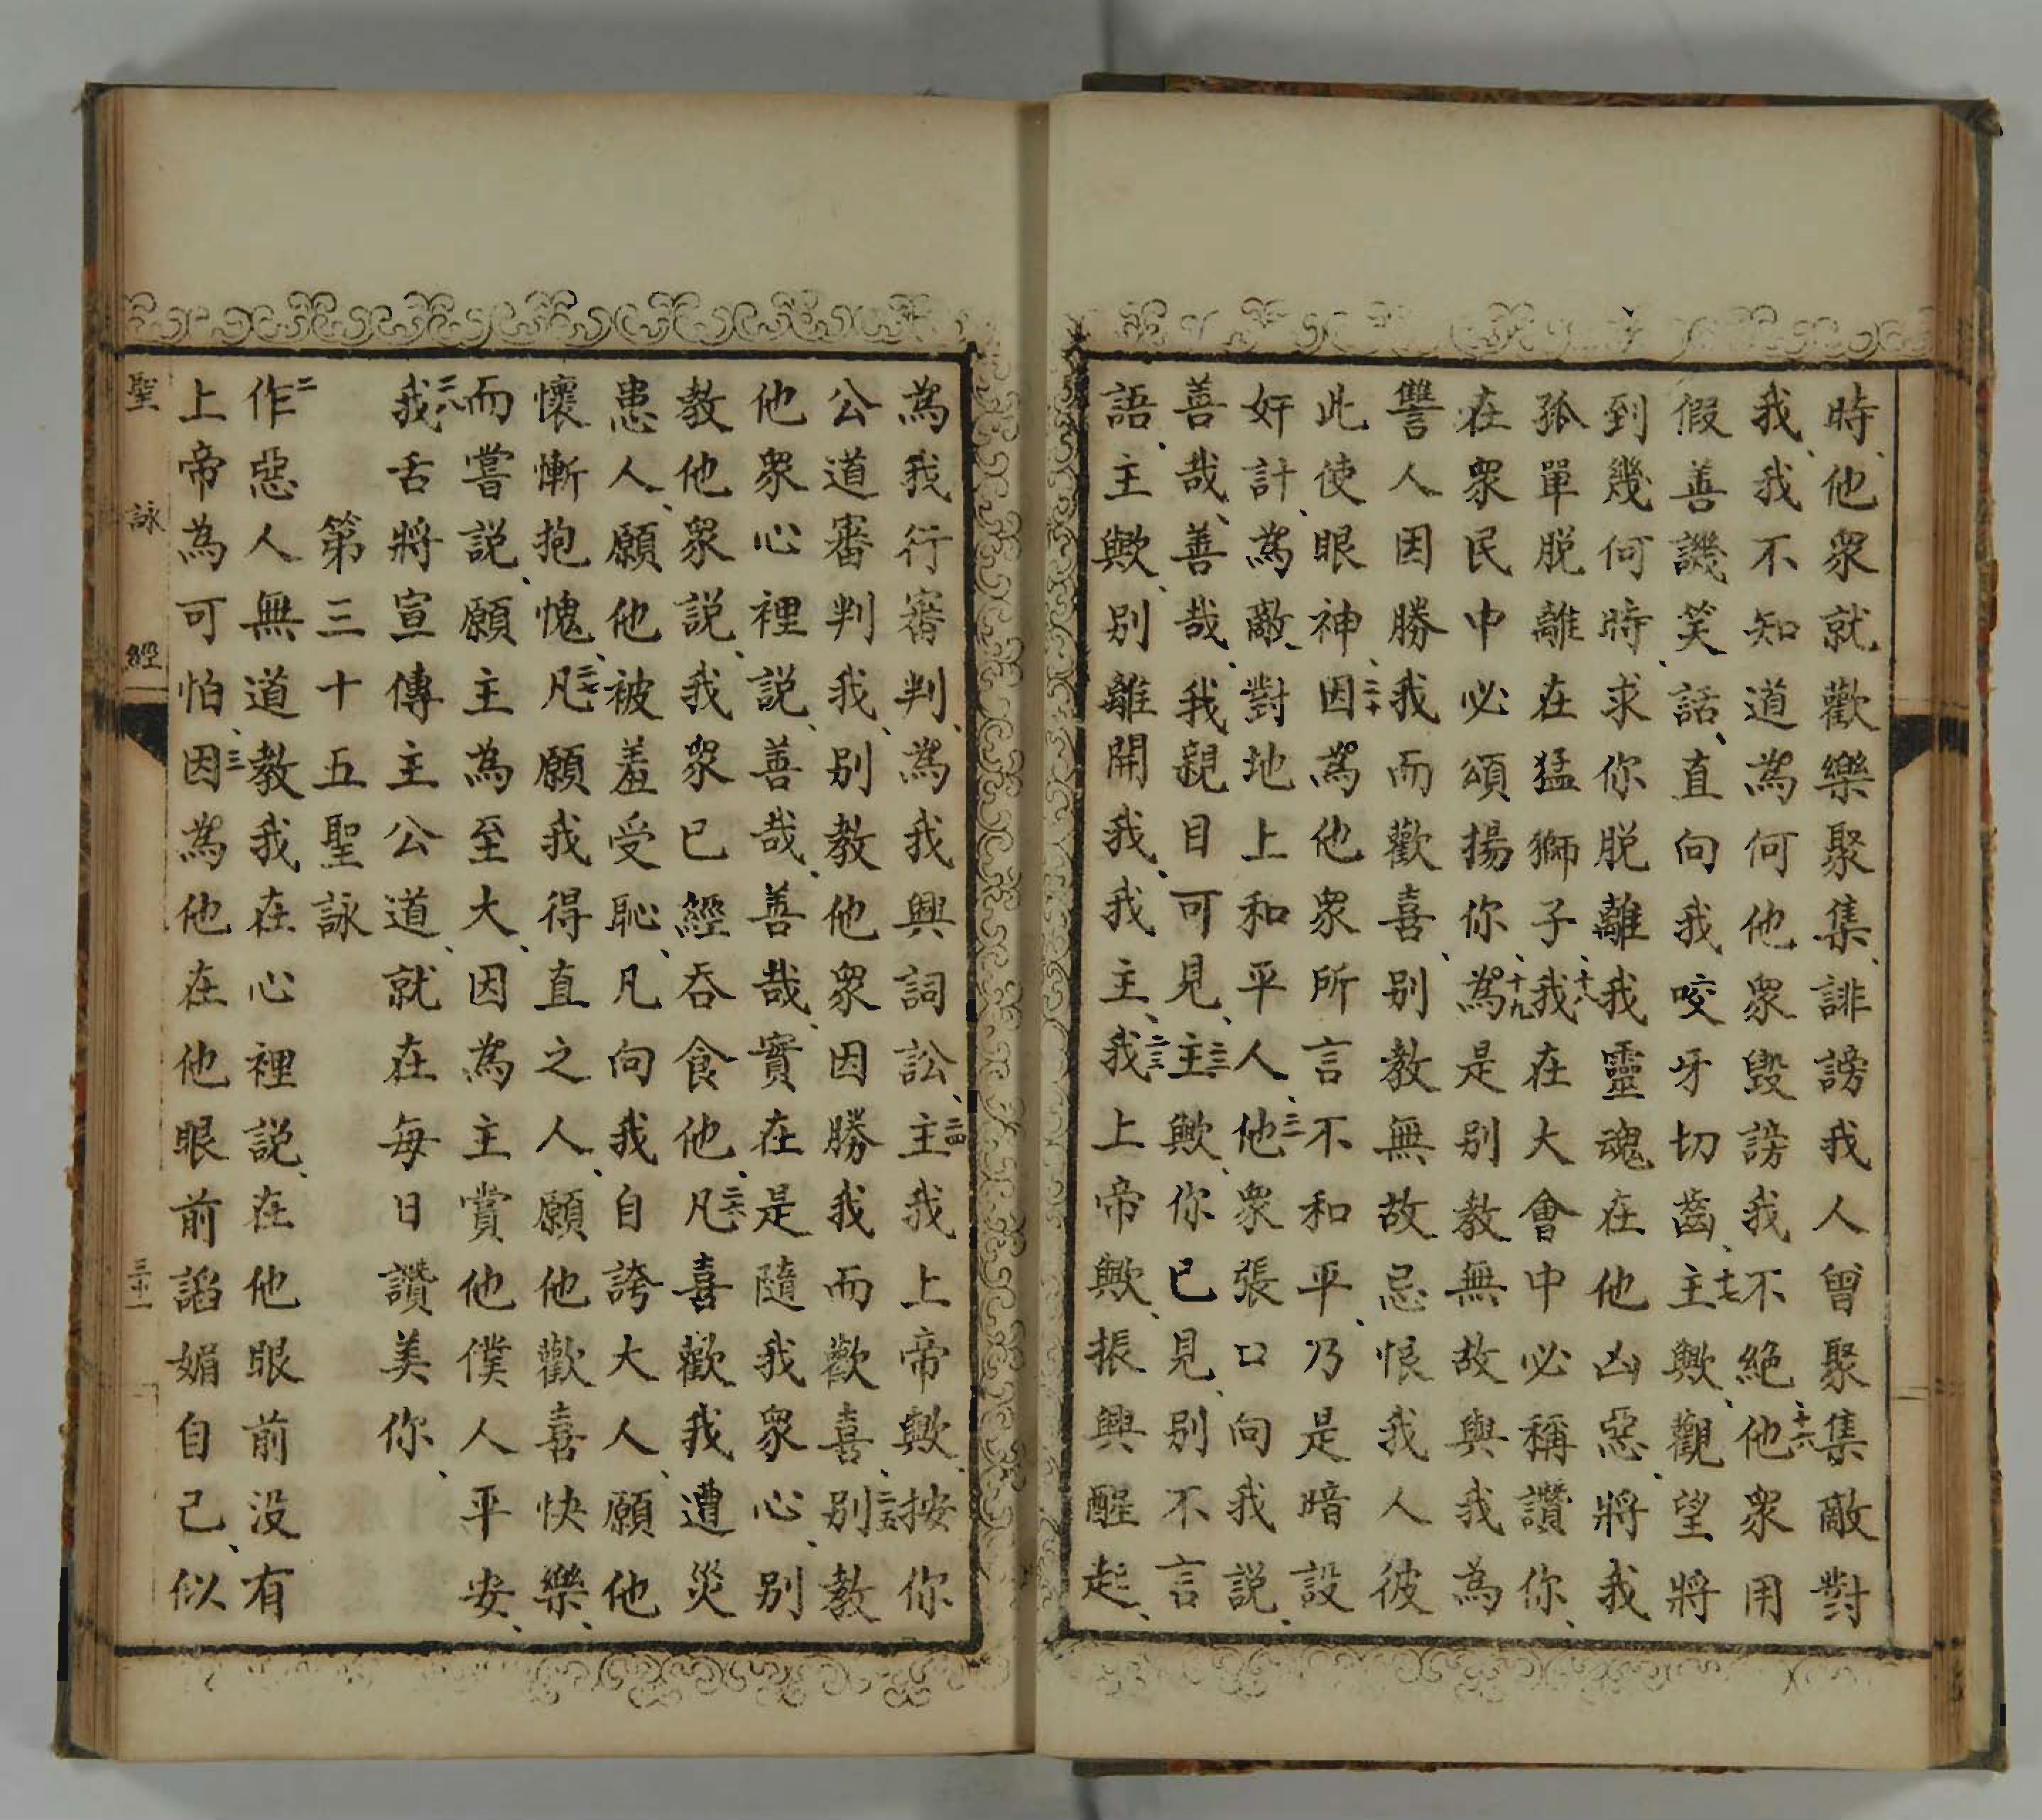 時、他衆就歡樂聚集、誹謗我人曾聚集敵對
我、我不知道為何他衆毀謗我不絶、十六他衆用
假善譏笑話、直向我咬牙切齒、十七主歟、觀望將
到幾何時、求你脱離我靈魂在他凶惡、將我
孤單脱離在猛獅子、十八我在大會中必稱讚你、
在衆民中必頌揚你、十九為是别教無故與我為
讐人因勝我而歡喜、别教無故忌恨我人彼
此使眼神、二十因為他衆所言不和平、乃是暗設
奸計、為敵對地上和平人、二一他衆張口向我説、
善哉、善哉、我親目可見、二二主歟、你已見、别不言
語、主歟、别離開我、我主、二三我上帝歟、振興醒起、
為我行審判、為我興詞訟、二四主我上帝歟、按你
公道審判我、别教他衆因勝我而歡喜、二五别教
他衆心裡説、善哉、善哉、實在是隨我衆心、别
教他衆説、我衆已經吞食他、二六凡喜歡我遭災
患人、願他被羞受恥、凡向我自誇大人、願他
懷慚抱愧、二七凡願我得直之人、願他歡喜快樂、
而嘗説、願主為至大、因為主賞他僕人平安、
二八我舌將宣傳主公道、就在每日讚美你、
第三十五聖詠
二作惡人無道教我在心裡説、在他眼前没有
上帝為可怕、三因為他在他眼前諂媚自己、似
聖詠經
三十一